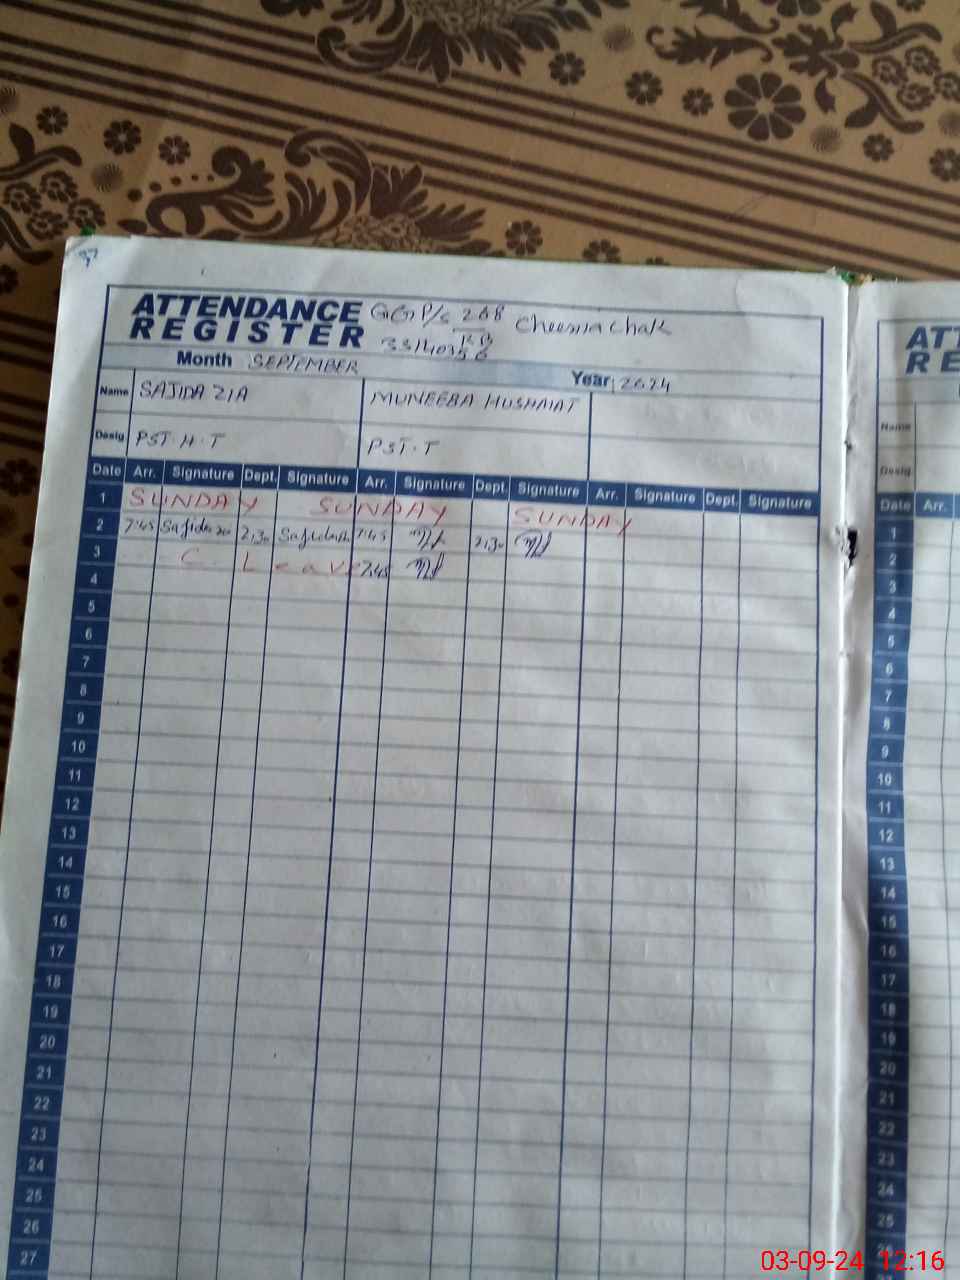 37
ATTENDANCE REGISTER
GGP/S 268 RB Cheema Chak
Month SEPTEMBER
Year 2024
Name SAJIDA ZIA MUNEEBA HUSHMAT
Desig PST.H.T PST.T
Date Arr. Signature Dept. Signature Arr. Signature Dept. Signature Arr. Signature Dept. Signature
1 SUNDAY SUNDAY SUNDAY
2 7:45 2,30 7:45 2,30
3 C. Leave 7:45
4
5
6
7
8
9
10
11
12
13
14
15
16
17
18
19
20
21
22
23
24
25
26
27
ATT
RE
Name
Desig
Date Arr.
1
2
3
4
5
6
7
8
9
10
11
12
13
14
15
16
17
18
19
20
21
22
23
24
25
03-09-24 12:16